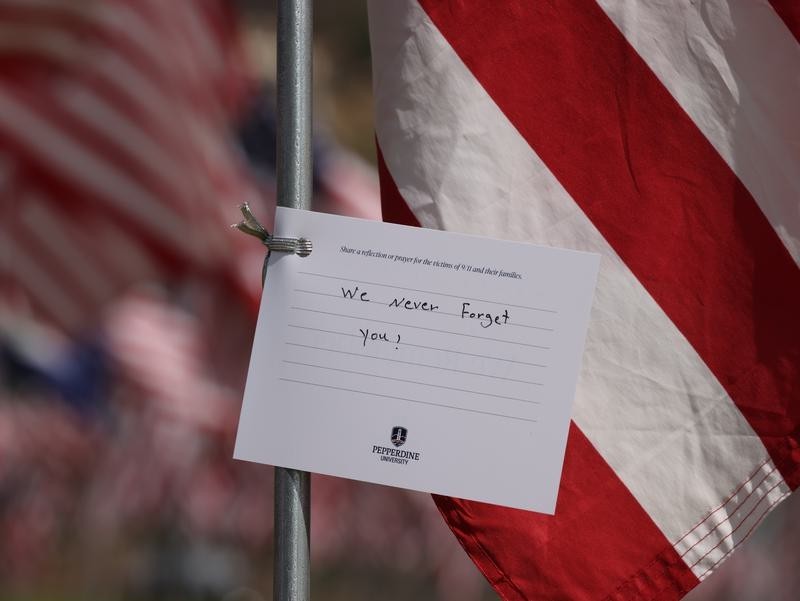 Share a reflection or prayer for the victims of 9/11 and their families.
We Never Forget
You!
PEPPERDINE
UNIVERSITY